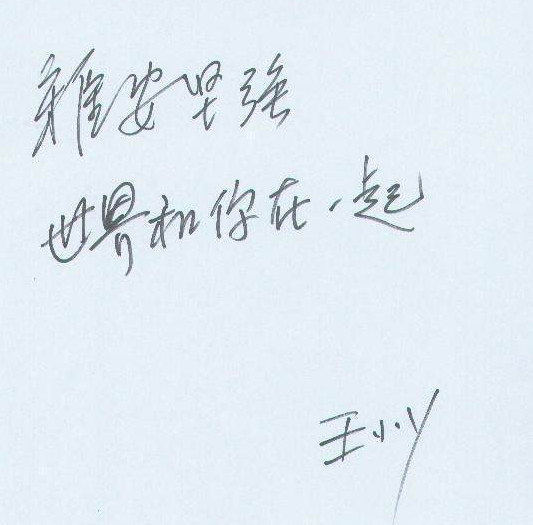 雅安坚强
世界和你在一起
王小丫